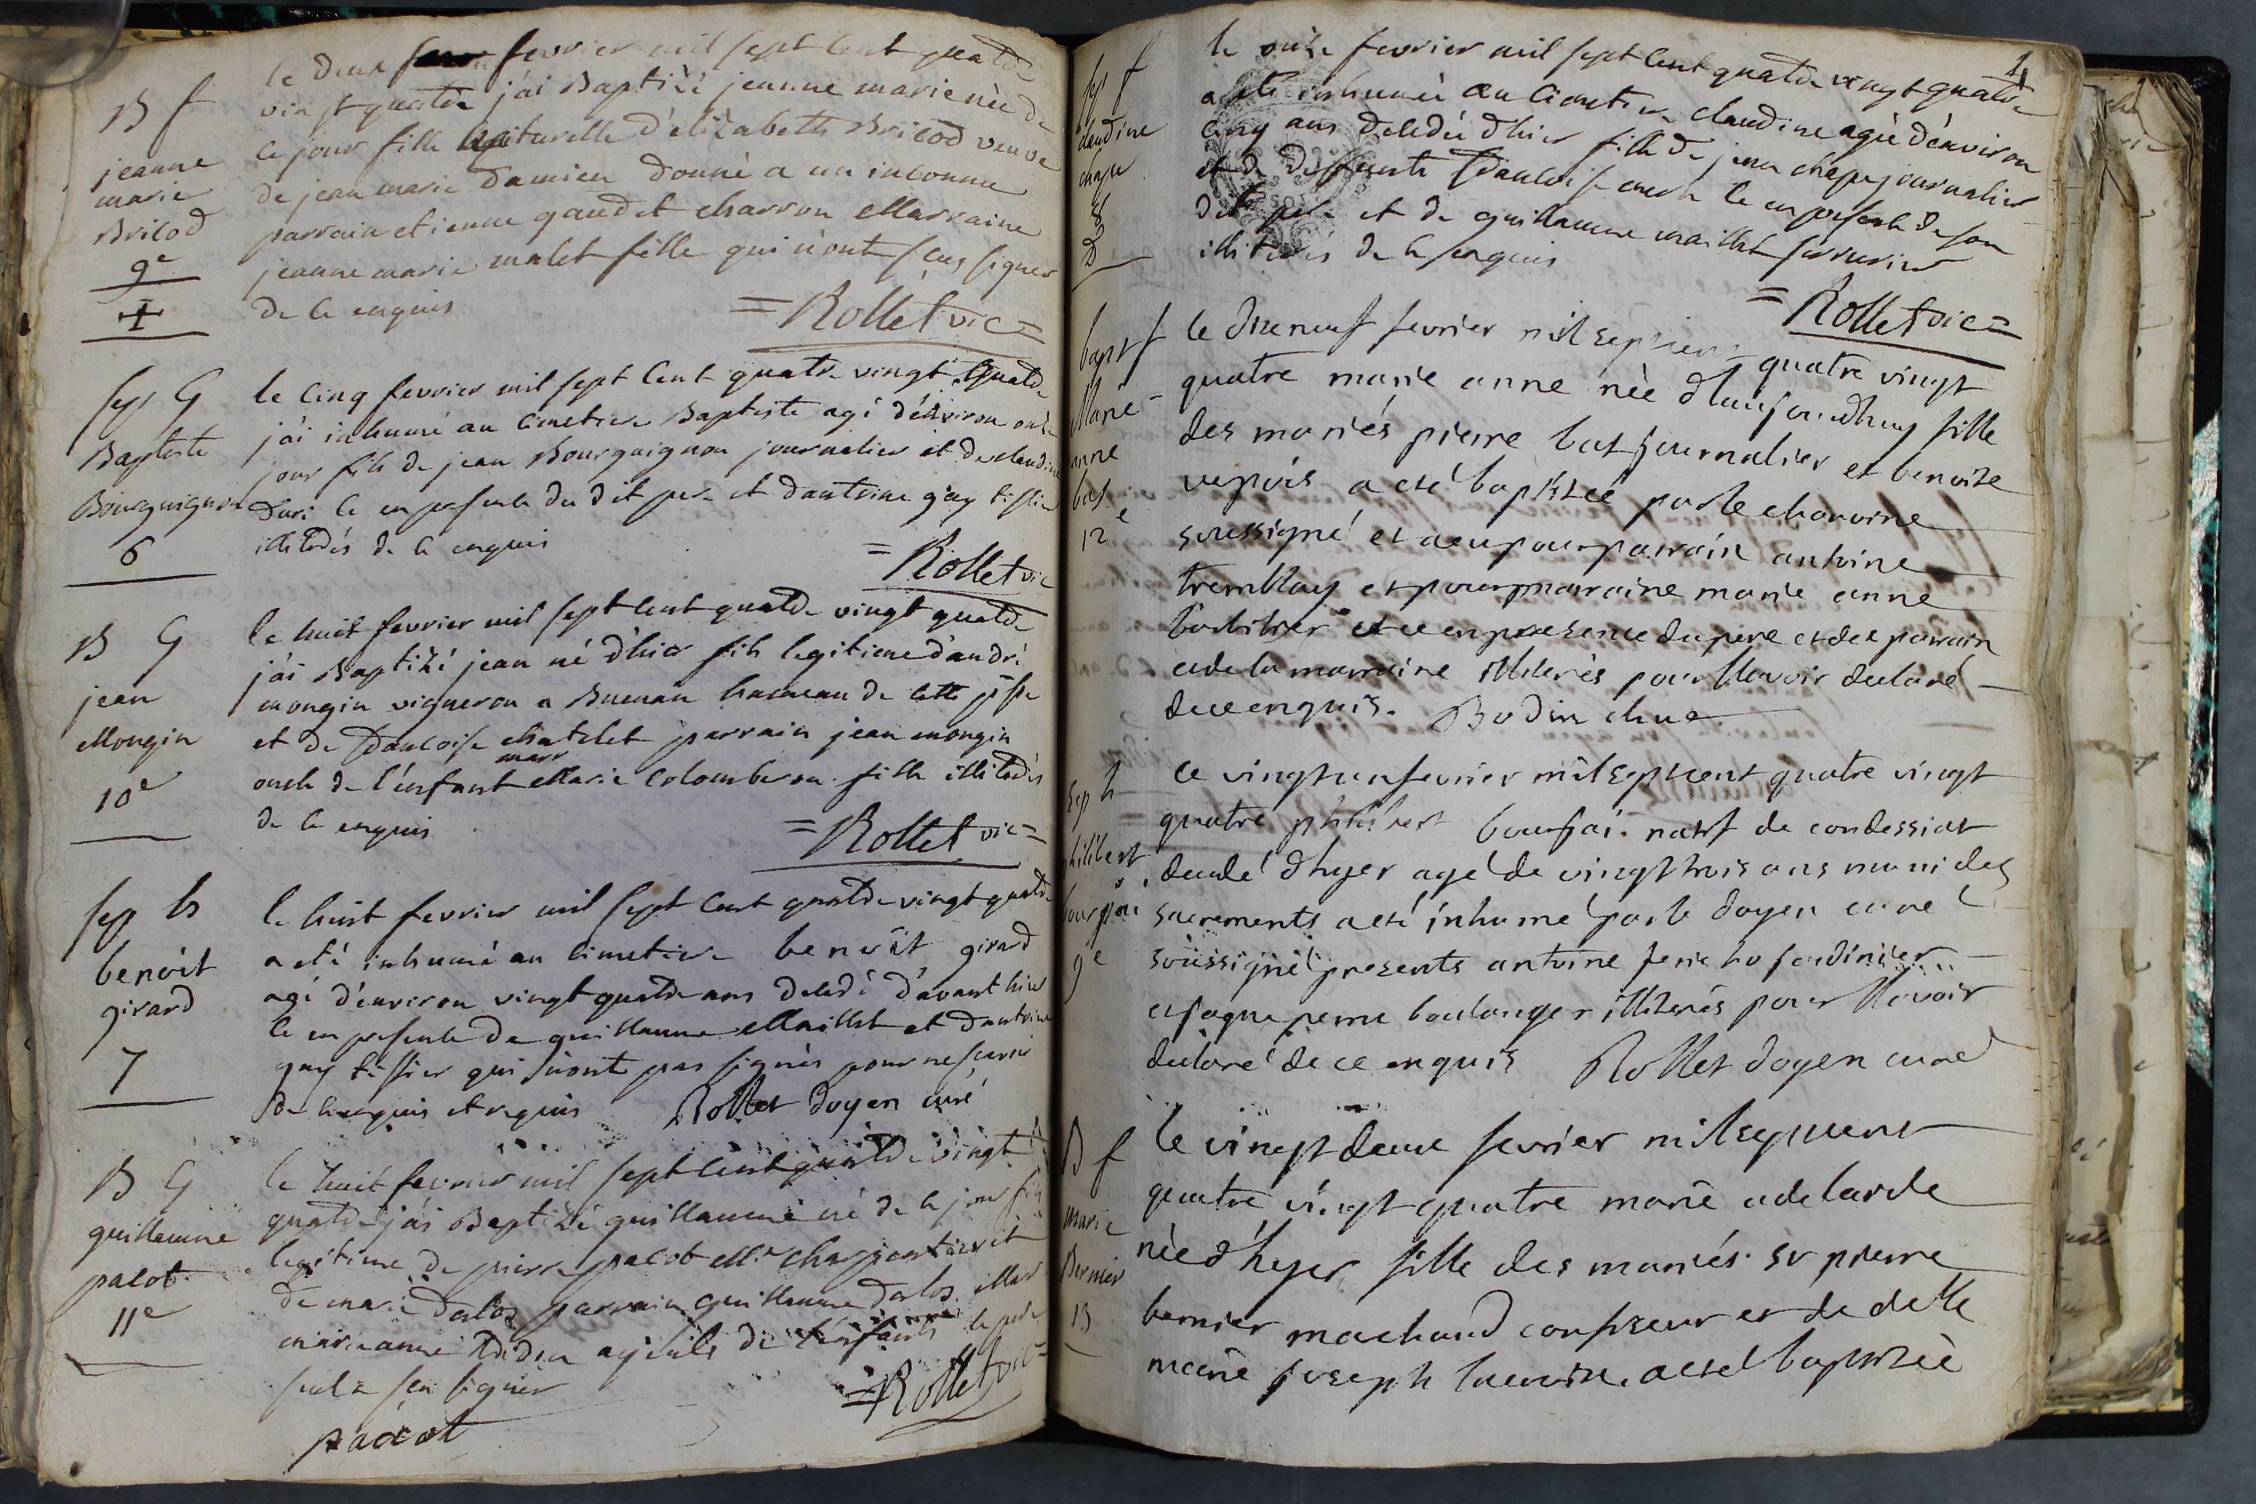 B f
jeanne
marie
Bricod
9e
le deux fevrier mil sept cent quatre
vingt quatre j'ai Baptizé jeanne marie née de
ce jour fille naturelle d'elizabeth Bricod veuve
de jean marie damien donné a un inconnu
parrain etienne gaudet charron Marraine
jeanne marie malet fille qui n'ont sçu signer
de ce enquis
=Rollet vic=
sep G
Baptiste
Bourguignon
6
le cinq fevrier mil sept cent quatre vingt quatre
j'ai inhumé au cimetiere Baptiste agé d'environ onze
jour fils de jean Bourguignon journalier et de claudine
duri ce en presence du dit pere et d'antoine gay tissier
illiterés de ce enquis
=Rollet vic
B G
jean
Mongin
10e
le huit fevrier mil sept cent quatre vingt quatre
j'ai Baptizé jean né d'hier fils legitime d'andré
mongin vigneron a Buenan hameau de cette psse
et de francoise chatelet parrain jean mongin
oncle de l'enfant marr Marie colomberon fille illiterés
de ce enquis
=Rollet vic=
sep h
benoit
girard
7
le huit fevrier mil sept cent quatre vingt quatre
a eté inhumé au cimetiere benoît girard
agé d'environ vingt quatre ans decedé d'avant hier
ce en presence de guillaume Maillet et d'antoine
gay tissier qui n'ont pas signés pour ne sçavoir
de ce enquis et requis Rollet doyen curé
B G
guillaume
pacot
11e
le huit fevrier mil sept cent quatre vingt
quatre j'ai Baptizé guillaume né de ce jour fils
legitime de pierre pacot Me charpentier et
de marie dalos parrain guillaume dalos Mar
marieanne didier ayeuls de l'enfant le pere
seul a sçu signer
=Rollet vic=
pacot
1
sep f
claudine
chape
8
le onze fevrier mil sept cent quatre vingt quatre
a eté inhumée au cimetiere claudine agée d'environ
cinq ans decedée d'hier fille de jean chape journalier
et de deffunte francoise ce en presence de son
dit pere et de guillaume maillet serrurier
illiterés de ce enquis
=Rollet vic=
bapt f
Marie
anne
bat
12e
le dixneuf fevrier mil sept cent quatre vingt
quatre marie anne née d'haujourdhuy fille
des mariés pierre bat journalier et benoite
vepois a eté baptizée par le chanoine
soussigné et a eu pour parrain antoine
tremblay et pour marraine marie anne
et ce en presence du pere et de parrain
et de la marraine illiterés pour l'avoir declaré
de ce enquis. Bodin chne
sep h
philibert
bourjai
9e
ce vingt un fevrier mil sept cent quatre vingt
quatre philibert bourjai natif de condessiat
decedé d'hyer agé de vingt trois ans muni des
sacrements a eté inhumé par le doyen curé
soussigné presents antoine jardinier
et jaque perru boulanger illiterés pour l'avoir
declaré de ce enquis Rollet doyen curé
B f
marie
Bernier
13
le vingt deux fevrier mil sept cent
quatre vingt quatre marie adelarde
née d'hyer fille des mariés sr pierre
bernier machand confizeur et de delle
marie joseph lacroix a eté baptizée